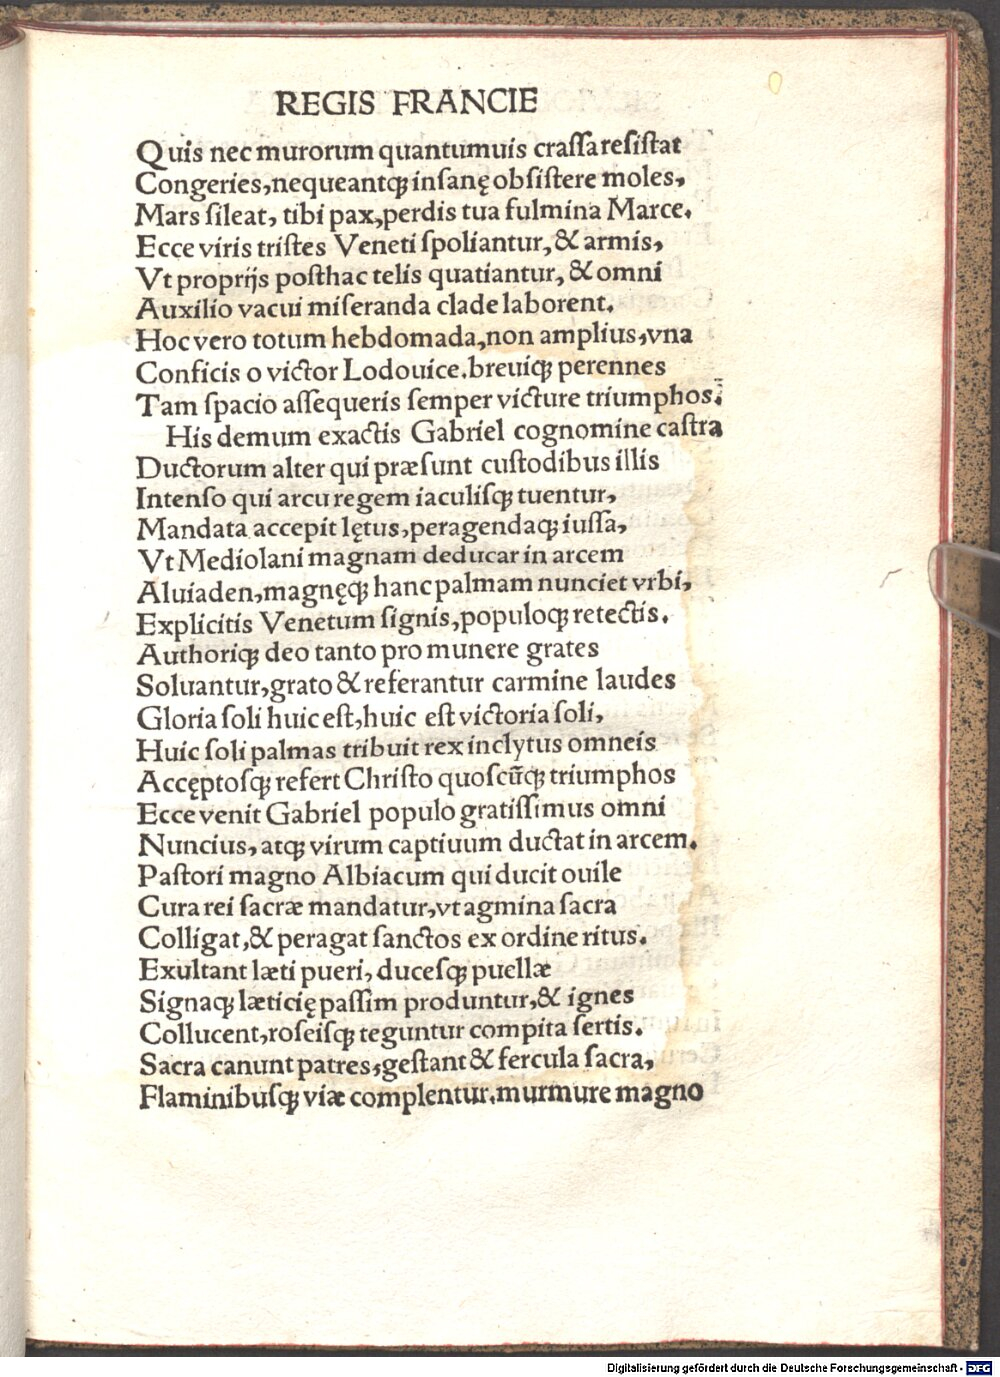 REGIS FRANCIE
Quis nec murorum quantumuis crassa resistat
Congeries, nequeantqꝫ insanę obsistere moles,
Mars sileat, tibi pax, perdis tua fulmina Marce.
Ecce viris tristes Veneti spoliantur, & armis,
Vt proprijs posthac telis quatiantur, & omni
Auxilio vacui miseranda clade laborent.
Hoc vero totum hebdomada, non amplius, vna
Conficis o victor Lodouice. breuiqꝫ perennes
Tam spacio assequeris semper victure triumphos.
His demum exactis Gabriel cognomine castra
Ductorum alter qui præsunt custodibus illis
Intenso qui arcu regem iaculisqꝫ tuentur,
Mandata accepit lętus, peragendaqꝫ iussa,
Vt Mediolani magnam deducar in arcem
Aluiaden, magnęqꝫ hanc palmam nunciet vrbi,
Explicitis Venetum signis, populoqꝫ retectis.
Authoriqꝫ deo tanto pro munere grates
Soluantur, grato & referantur carmine laudes
Gloria soli huic est, huic est victoria soli,
Huic soli palmas tribuit rex inclytus omneis
Accęptosqꝫ refert Christo quoscūqꝫ triumphos
Ecce venit Gabriel populo gratissimus omni
Nuncius, atqꝫ virum captiuum ductat in arcem.
Pastori magno Albiacum qui ducit ouile
Cura rei sacræ mandatur, vt agmina sacra
Colligat, & peragat sanctos ex ordine ritus.
Exultant læti pueri, ducesqꝫ puellæ
Signaqꝫ læticię passim produntur, & ignes
Collucent, roseisqꝫ teguntur compita sertis.
Sacra canunt patres, gestant & fercula sacra,
Flaminibusqꝫ viæ complentur. murmure magno
Digitalisierung gefördert durch die Deutsche Forschungsgemeinschaft - DFG